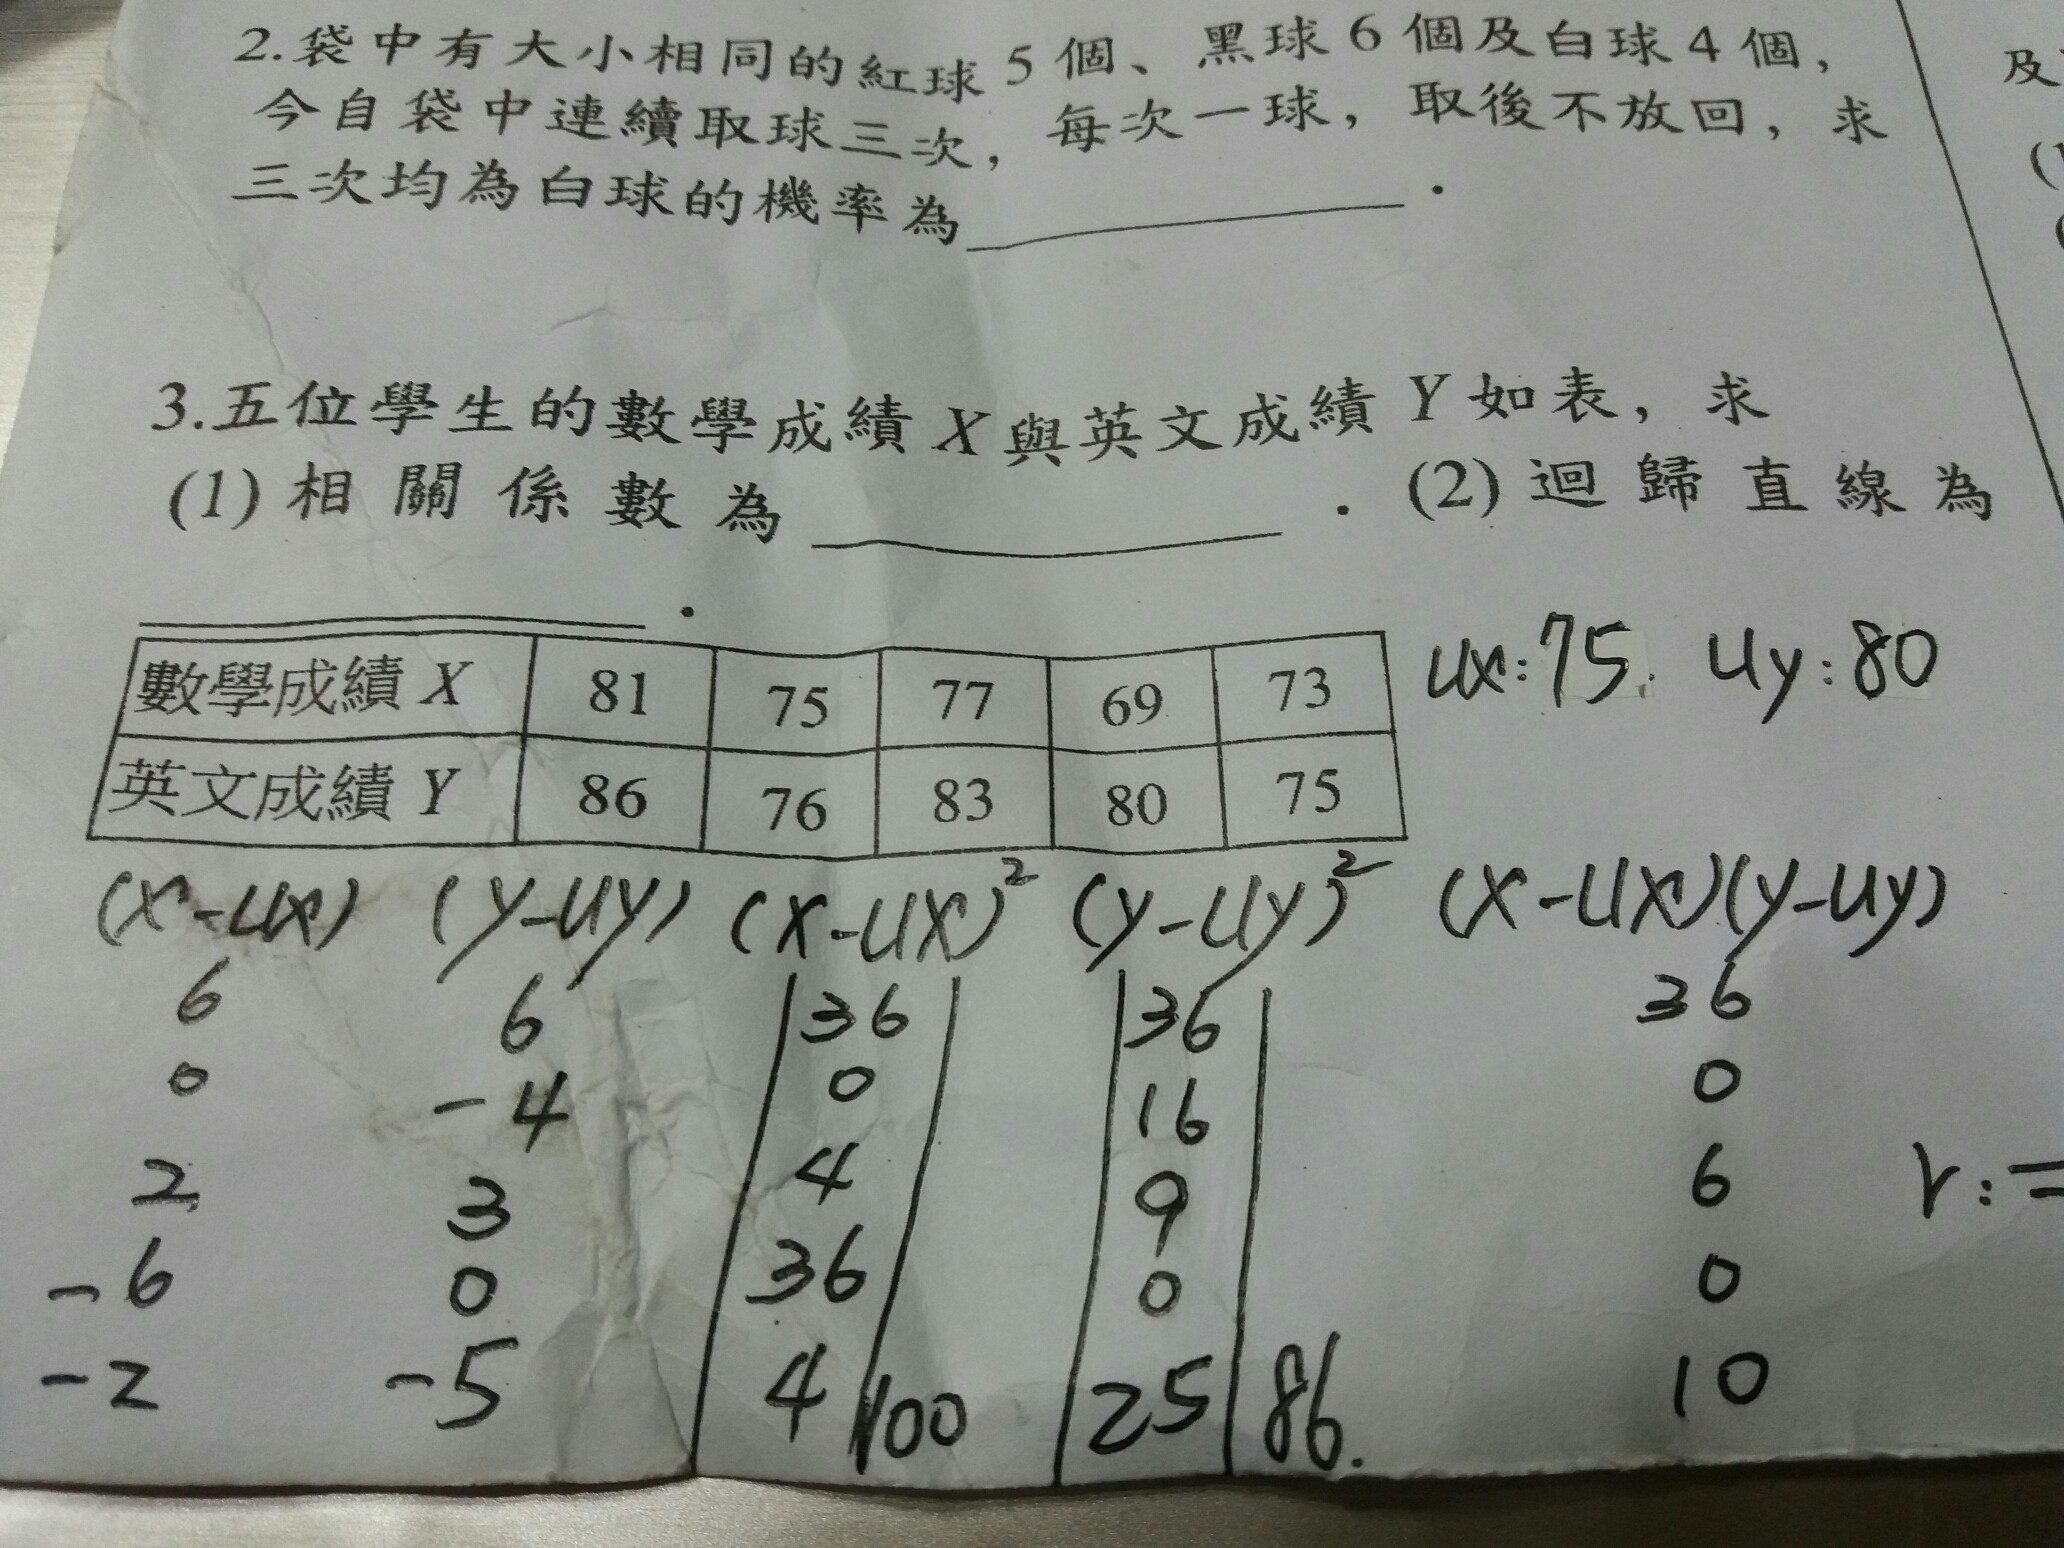 2.袋中有大小相同的紅球5個、黑球6個及白球4個，
今自袋中連續取球三次，每次一球，取後不放回，求
三次均為白球的機率為________．
3.五位學生的數學成績X與英文成績Y如表，求
(1)相關係數為________．(2)迴歸直線為
________．
數學成績X 81 75 77 69 73
英文成績Y 86 76 83 80 75
ux:75. uy:80
(x-ux) (y-uy) (x-ux)² (y-uy)² (x-ux)(y-uy)
6 6 36 36 36
0 -4 0 16 0
2 3 4 9 6
-6 0 36 0 0
-2 -5 4 100 25 86. 10
r:=
及